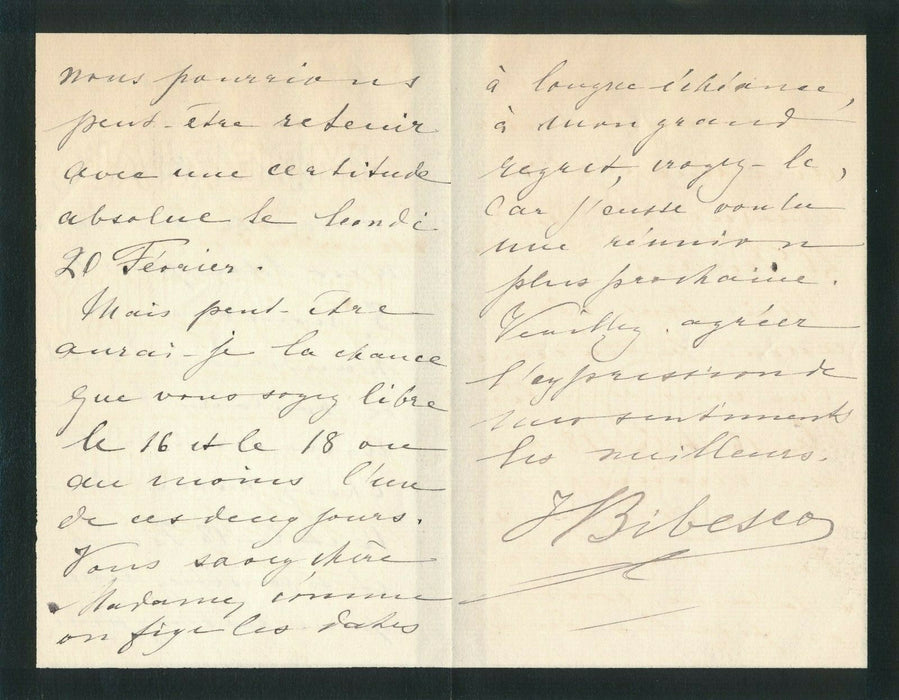 nous pourrions
peut-être retenir
avec une certitude
absolue le lundi
20 Février.
Mais peut-être
aurai-je la chance
que vous soyez libre
le 16 et le 18 ou
au moins l'un
de ces deux jours.
Vous savez chère
Madame, comme
on fixe les dates
à longue échéance,
à mon grand
regret, croyez-le,
car j'eusse voulu
une réunion
plus prochaine.
Veuillez agréer
l'expression de
mes sentiments
les meilleurs.
Bibesco